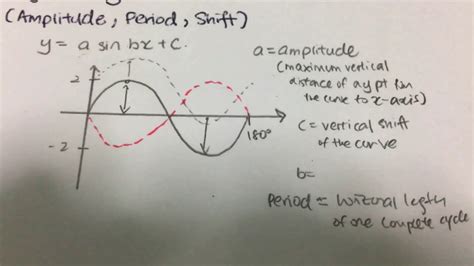 (Amplitude, Period, Shift)
y = a sin bx + c.
a = amplitude
(maximum vertical
distance of a pt from
the curve to x-axis)
2
180°
-2
c = vertical shift
of the curve
b=
Period = horizontal length
of one complete cycle